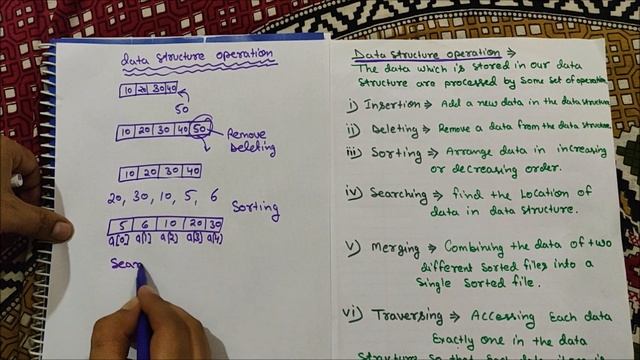 data structure operation
10 20 30 40
50
10 20 30 40 50
Remove
Deleting
10 20 30 40
20, 30, 10, 5, 6
Sorting
5 6 10 20 30
a[0] a[1] a[2] a[3] a[4]
Sear
Data structure operation ⇒
The data which is stored in our data
structure are processed by some set of operation
i) Insertion ⇒ Add a new data in the data structure
ii) Deleting ⇒ Remove a data from the data structure
iii) Sorting ⇒ Arrange data in increasing
or decreasing order.
iv) Searching ⇒ find the Location of
data in data structure.
v) Merging ⇒ Combining the data of two
different sorted files into a
single sorted file.
vi) Traversing ⇒ Accessing Each data
Exactly one in the data
structure so that each data